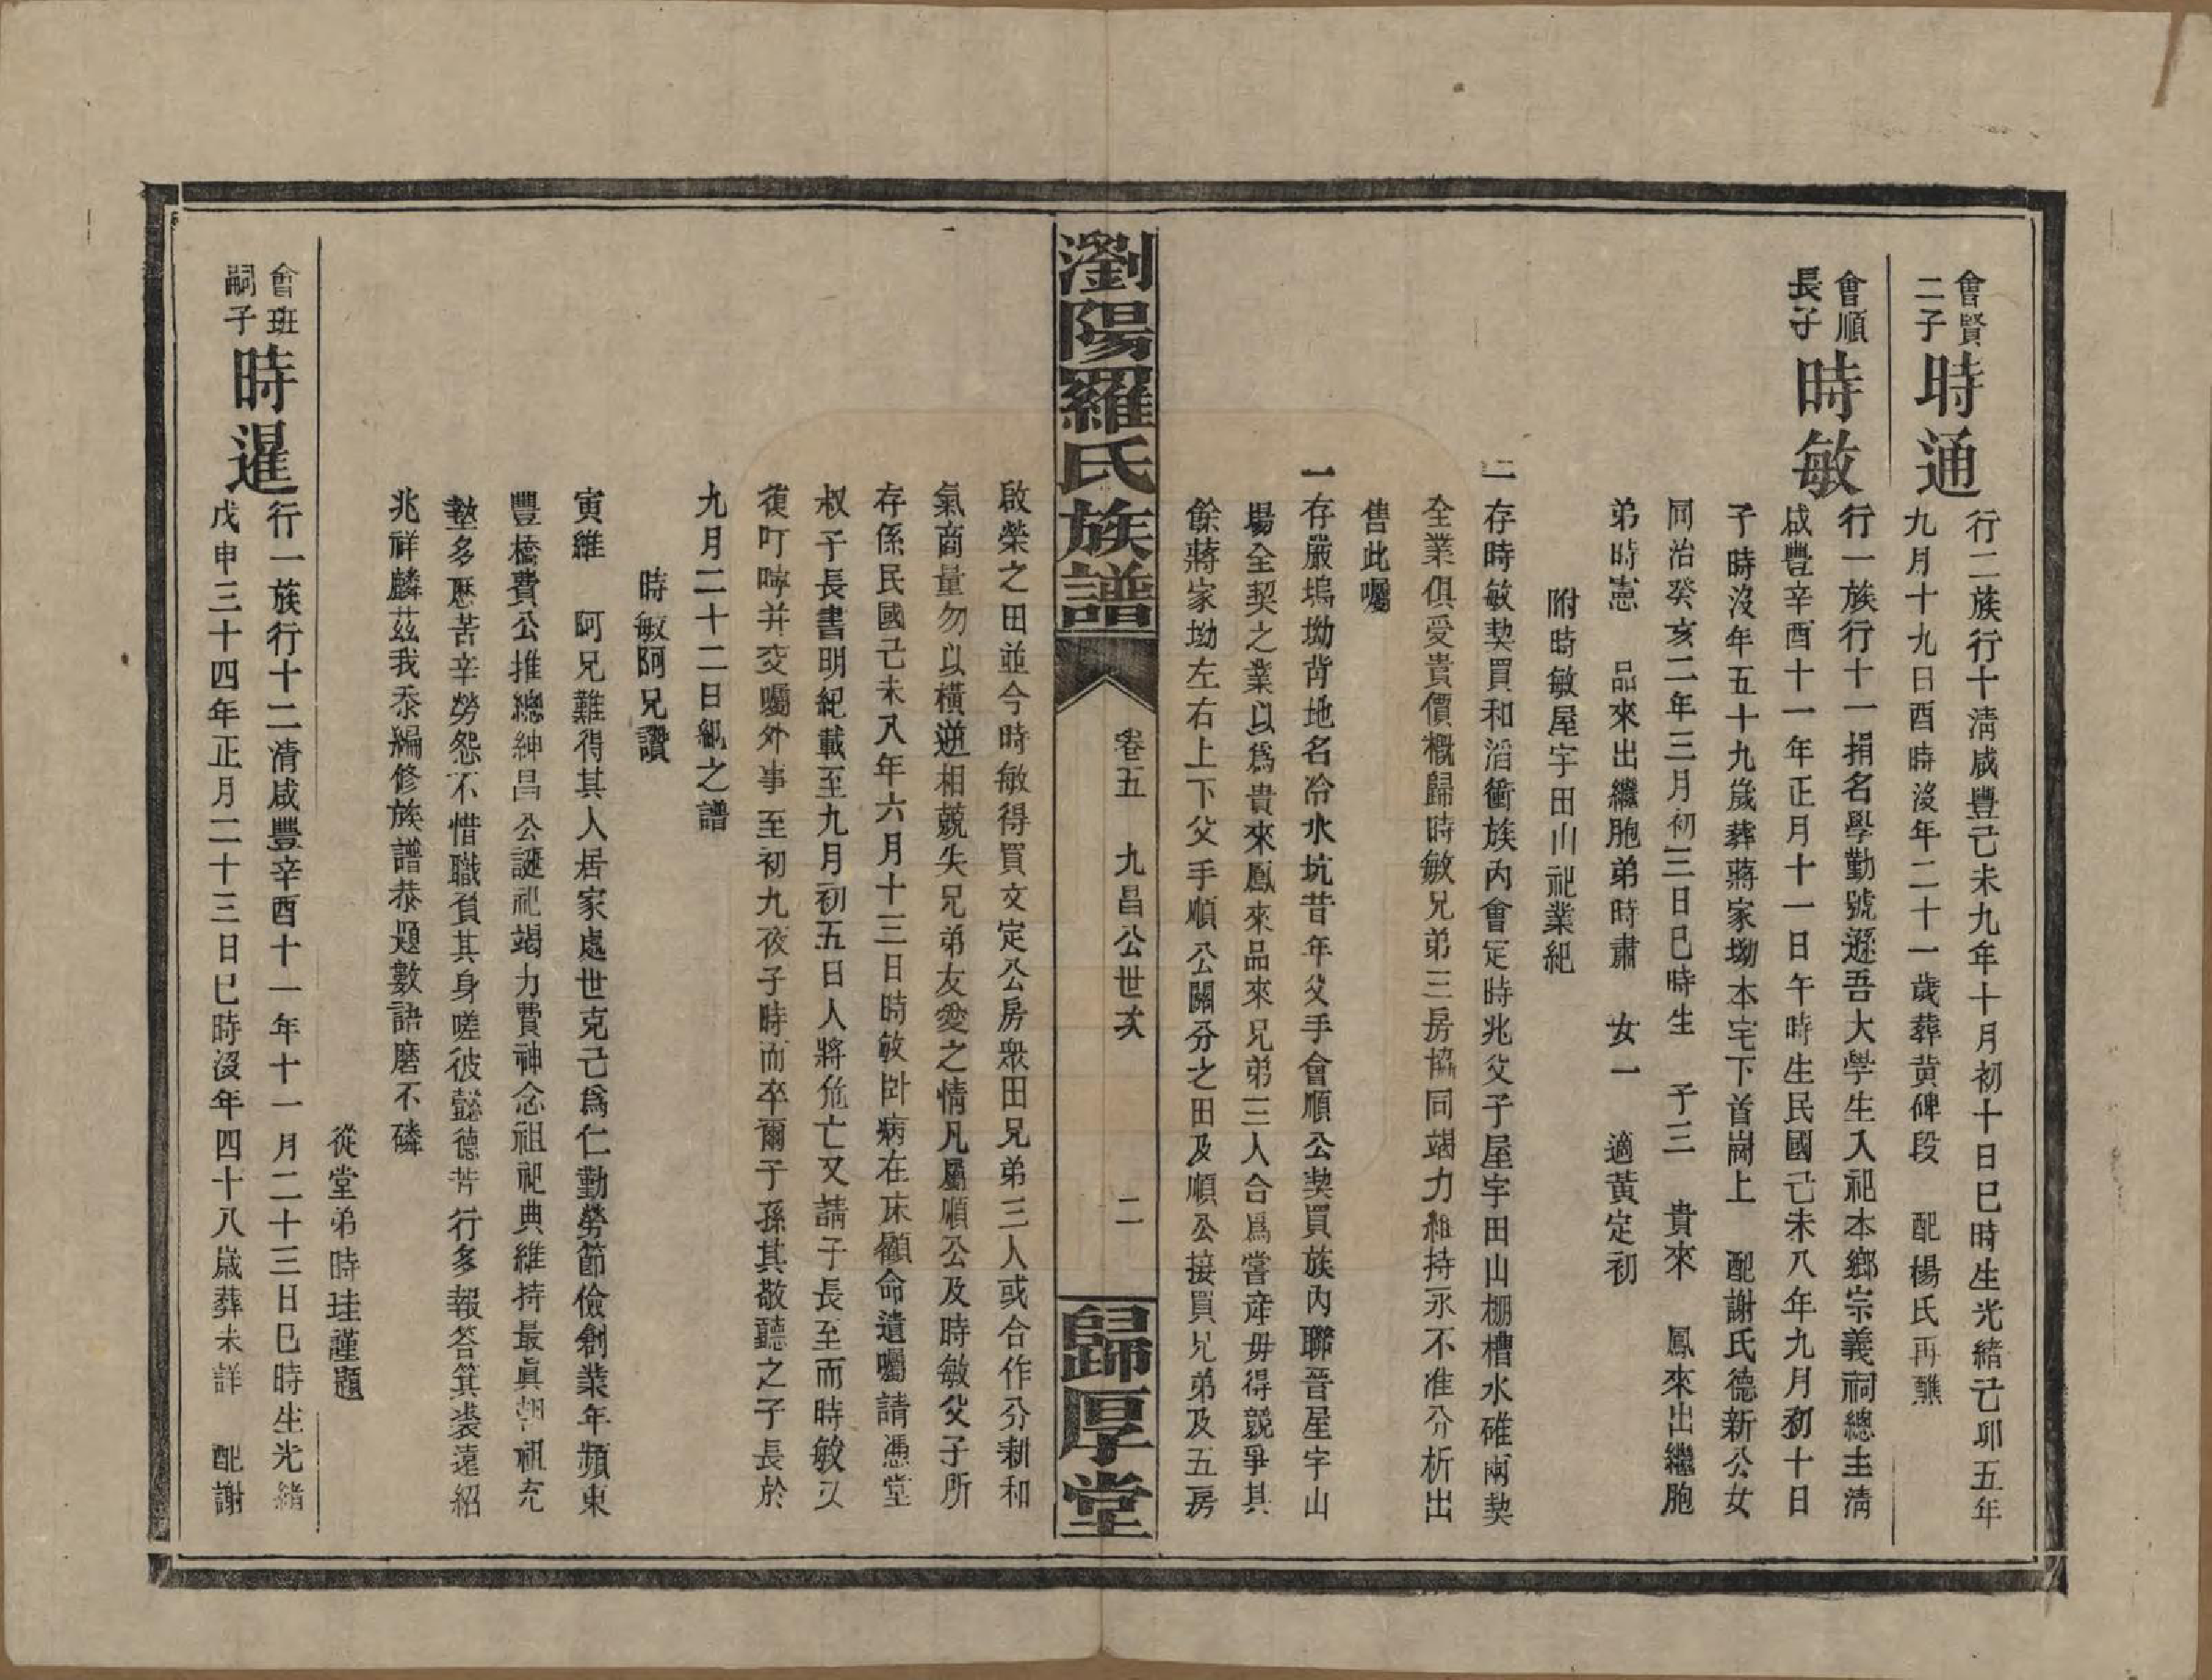 會賢
二子
時通
行二族行十淸咸豐己未九年十月初十日巳時生光緒己卯五年
九月十九日酉時沒年二十一歲葬黃碑段　配楊氏再醮
會順
長子
時敏
行一族行十一捐名學勤號遜吾大學生入祀本鄉宗義祠總主淸
咸豐辛酉十一年正月十一日午時生民國己未八年九月初十日
子時沒年五十九歲葬蔣家坳本宅下首崗上　配謝氏德新公女
同治癸亥二年三月初三日巳時生　子三　貴來　鳳來出繼胞
弟時憲　品來出繼胞弟時肅　女一　適黃定初
附時敏屋宇田山祀業紀
一存時敏契買和滔衝族內會定時兆父子屋宇田山棚槽水碓兩契
全業俱受貴價概歸時敏兄弟三房協同竭力維持永不准分析出
售此囑
一存嚴塢坳背地名冷水坑昔年父手會順公契買族內聯晉星宇山
場全契之業以爲貴來鳳來品來兄弟三人合爲嘗產毋得競爭其
餘蔣家坳左右上下父手順公鬮分之田及順公接買兄弟及五房
瀏陽羅氏族譜
卷五　九昌公世次
二
歸厚堂
啟榮之田並今時敏得買文定公房衆田兄弟三人或合作分耕和
氣商量勿以橫逆相競失兄弟友愛之情凡屬順公及時敏父子所
存係民國己未八年六月十三日時敏臥病在床顧命遺囑請憑堂
叔子長書明紀載至九月初五日人將危亡又請子長至而時敏又
復叮嚀并交囑外事至初九夜子時而卒爾子孫其敬聽之子長於
九月二十二日紀之譜
時敏阿兄讚
寅維　阿兄難得其人居家處世克己爲仁勤勞節儉創業年頻東
豐橋費公推總紳昌公誕祀竭力費神念祖祀典維持最眞朝祖充
墊多歷苦辛勞怨不惜職負其身嗟彼懿德苦行多報答箕裘遠紹
兆祥麟茲我忝編修族譜恭題數語磨不磷
從堂弟時珪謹題
會班
嗣子
時暹
行一族行十二清咸豐辛酉十一年十一月二十三日巳時生光緒
戊申三十四年正月二十三日巳時沒年四十八歲葬未詳　配謝